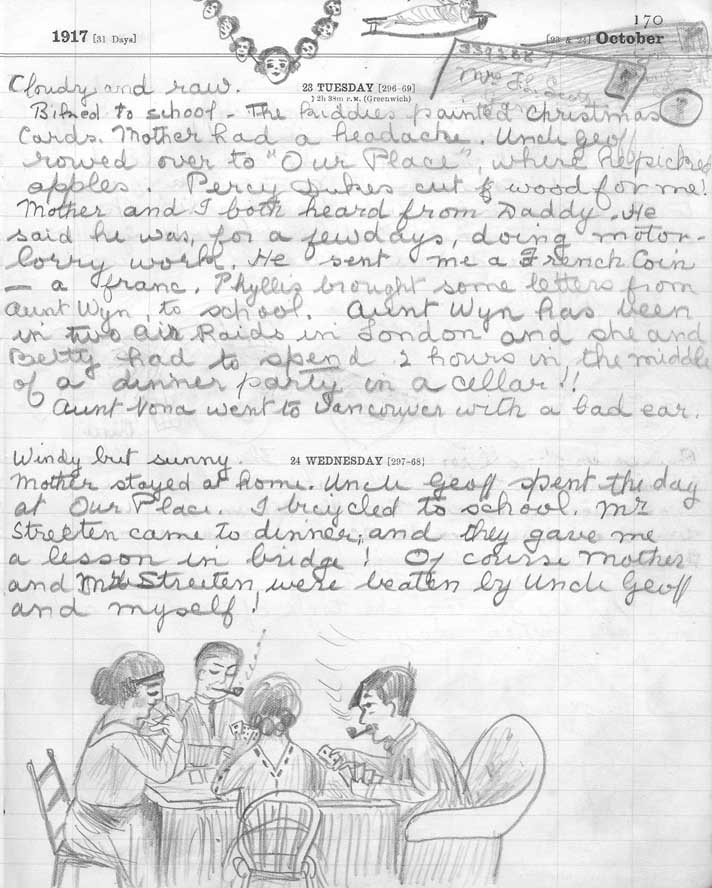 170
1917 [31 Days] [23 & 24] October
339288
Mrs
Cloudy and raw. 23 TUESDAY [296-69]
) 2h 38m P.M. (Greenwich)
Biked to school - The kiddies painted Christmas
Cards. Mother had a headache. Uncle Geoff
rowed over to "Our Place", where he picked
apples. Percy Dukes cut wood for me!
Mother and I both heard from Daddy. He
said he was, for a few days, doing motor-
lorry work. He sent me a French Coin
— a franc. Phyllis brought some letters from
Aunt Wyn, to school. Aunt Wyn has been
in two Air Raids in London and she and
Betty had to spend 2 hours in the middle
of a dinner party in a cellar!!
Aunt Nona went to Vancouver with a bad ear.
Windy but sunny. 24 WEDNESDAY [297-68]
Mother stayed at home. Uncle Geoff spent the day
at Our Place. I bicycled to school. Mr
Streeten came to dinner, and they gave me
a lesson in bridge! Of course Mother
and Mr Streeten, were beaten by Uncle Geoff
and myself!